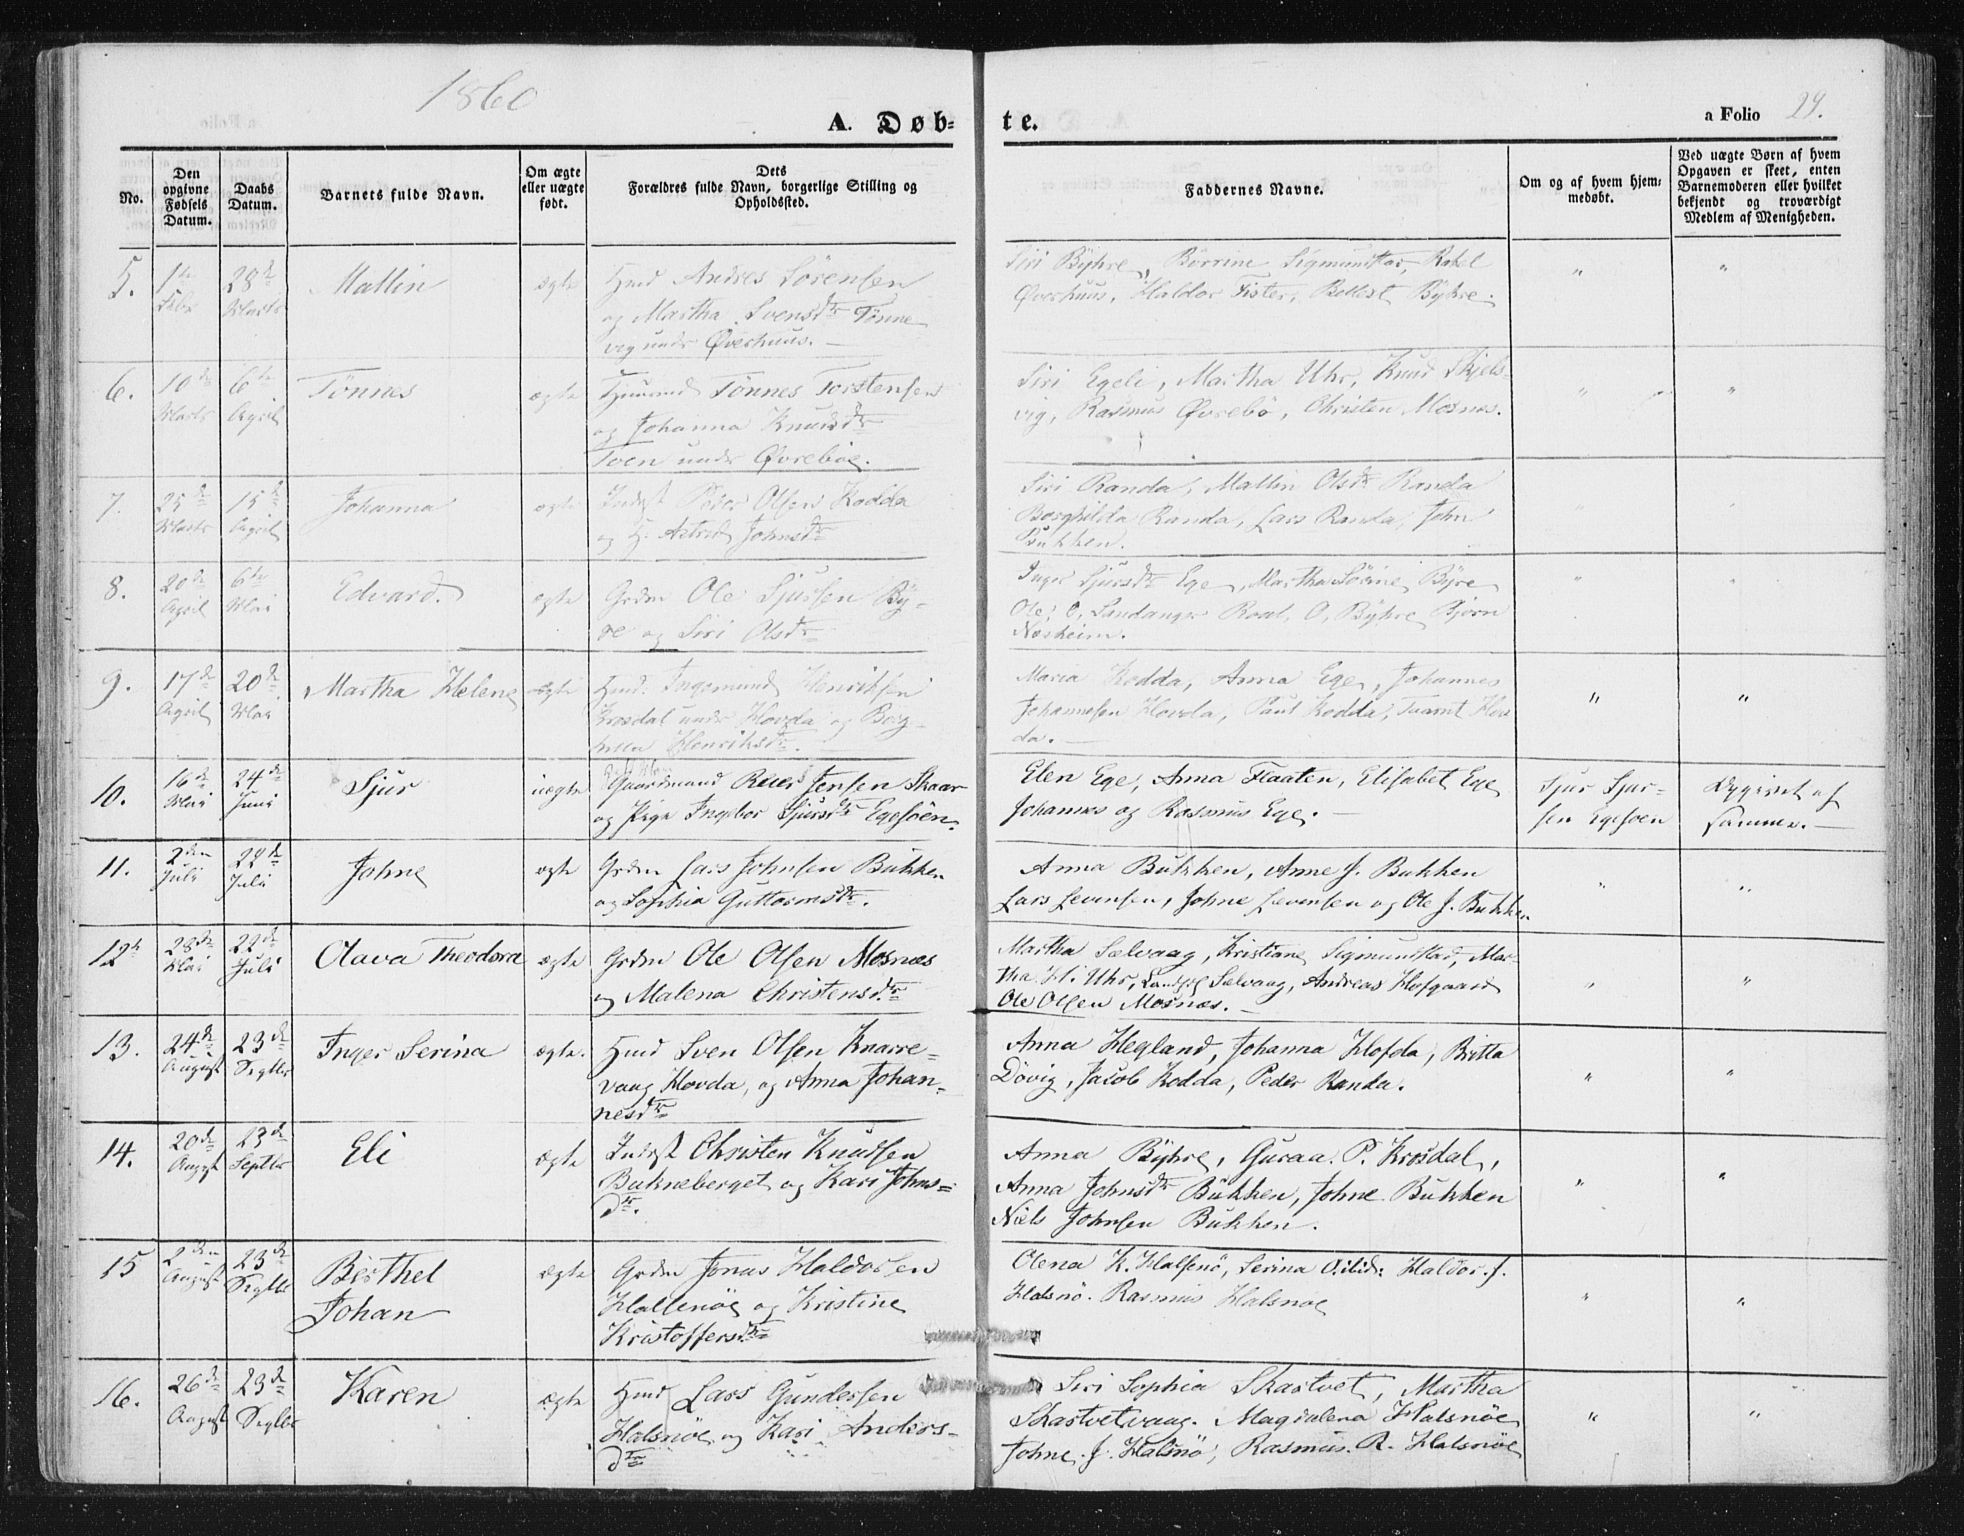 1860
A. Døb-
te.
a Folio 29.
No.
Den opgivne Fødsels Datum.
Daabs Datum.
Barnets fulde Navn.
Om ægte eller uægte født.
Dets Forældres fulde Navn, borgerlige Stilling og Opholdssted.
Faddernes Navne.
Om og af hvem hjemmedøbt.
Ved uægte Børn af hvem Opgaven er skeet, enten Barnemoderen eller hvilket bekjendt og troværdigt Medlem af Menigheden.
5. 1ste Febr 28de Marts Mallin ægte Hmd Andres Sörensen
og Martha Svensdtr Tönne
vig under Øverhuus.
Siri Byhre, Börrine Sigmunstad, Rakel
Øverhuus, Haldor Fister, Bollest Byhre.
" "
6. 10de Marts 6te April Tönnes ægte Tönnes Torstensen
og Johanna Knudsdtr
Toen under Øvrebøe.
Siri Egeli, Martha Uhr, Knud Skjels-
vig, Rasmus Øvrebö, Christen Mosnæs.
" "
7. 25de Marts 15de April Johanna ægte Inderst Peder Olsen Kodda
og H. Astrid Johnsdtr
Siri Randa, Mallin Olsdtr Randa
Borghilda Randa, Lars Randa, John
Bukken.
" "
8. 20de April 6te Mai Edvard. ægte Grdm Ole Sjursen By-
re og Siri Olsdtr
Inger Sjursdtr Ege, Martha Sörine Byre
Ole O. Landanger Roal. O. Byhre Bjørn
Næsheim.
" "
9. 17de April 20de Mai Martha Helene ægte Hmd. Ingemund Henriksen
Krosdal under Hovda og Borg-
hilla Henriksdtr.
Maria Kodda, Anna Ege, Johannes
Johannesen Hovda, Paul Kodda, Tnamt Hov
da.
" "
10. 16de Mai 24de Juni Sjur uægte Gaardmand Reier Jensen Skaar
og Pige Ingebor Sjursdtr Egesöen.
Elen Ege, Anna Flaaten, Elisabet Ege
Johannes og Rasmus Ege.
Sjur Sjur-
sen Egesoen
Opgivet af
samme.
11. 2den Juli 22de Juli Johne ægte Grdm Lars Johnsen Bukken
og Sophia Guttormsdtr.
Anna Bukken, Anne J. Bukken
Lars Levensen, Johne Levensen og Ole J. Bukken
" "
12. 28de Mai 22de Juli Olava Theodora ægte Grdm Ole Olsen Mosnæs
og Malena Christensdtr
Martha Sælvaag, Kristiane Sigmunstad, Mar-
tha H. Uhr, Sælvaag, Andreas Hofgaard
Ole Olsen Mosnæs.
" "
13. 24de August 23de Septbr Inger Serina ægte. Hmd Sven Olsen Knarre-
vaag Hovda, og Anna Johan-
nesdtr
Anna Hegland, Johanna Hofda, Britta
Dövig, Jacob Kodda, Peder Randa.
" "
14. 20de August 23de Septbr Eli ægte Inderst Christen Knudsen
Bukneberget og Kari Johns-
dtr.
Anna Byhre, Guraa. P. Krosdal,
Anna Johnsdtr Bukken, Johne Bukken
Niels Johnsen Bukken.
" "
15 2den August 23de Septbr Berthel
Johan
ægte Grdm Jonas Haldorsen
Halsenöe og Kristine
Kristoffersdtr
Olena K. Halsenö, Serina Haldor. J.
Halsnö. Rasmus Halsnoe
" "
16. 26de August 23de Septbr Karen ægte Hmd Lars Gundersen
Halsnöe og Kari Anders-
dtr
Siri Sophia Skartvet, Martha
Skartvetvaag. Magdalena Halsnöe
Johne. J. Halsnö, Rasmus. R. Halsnöe
" "